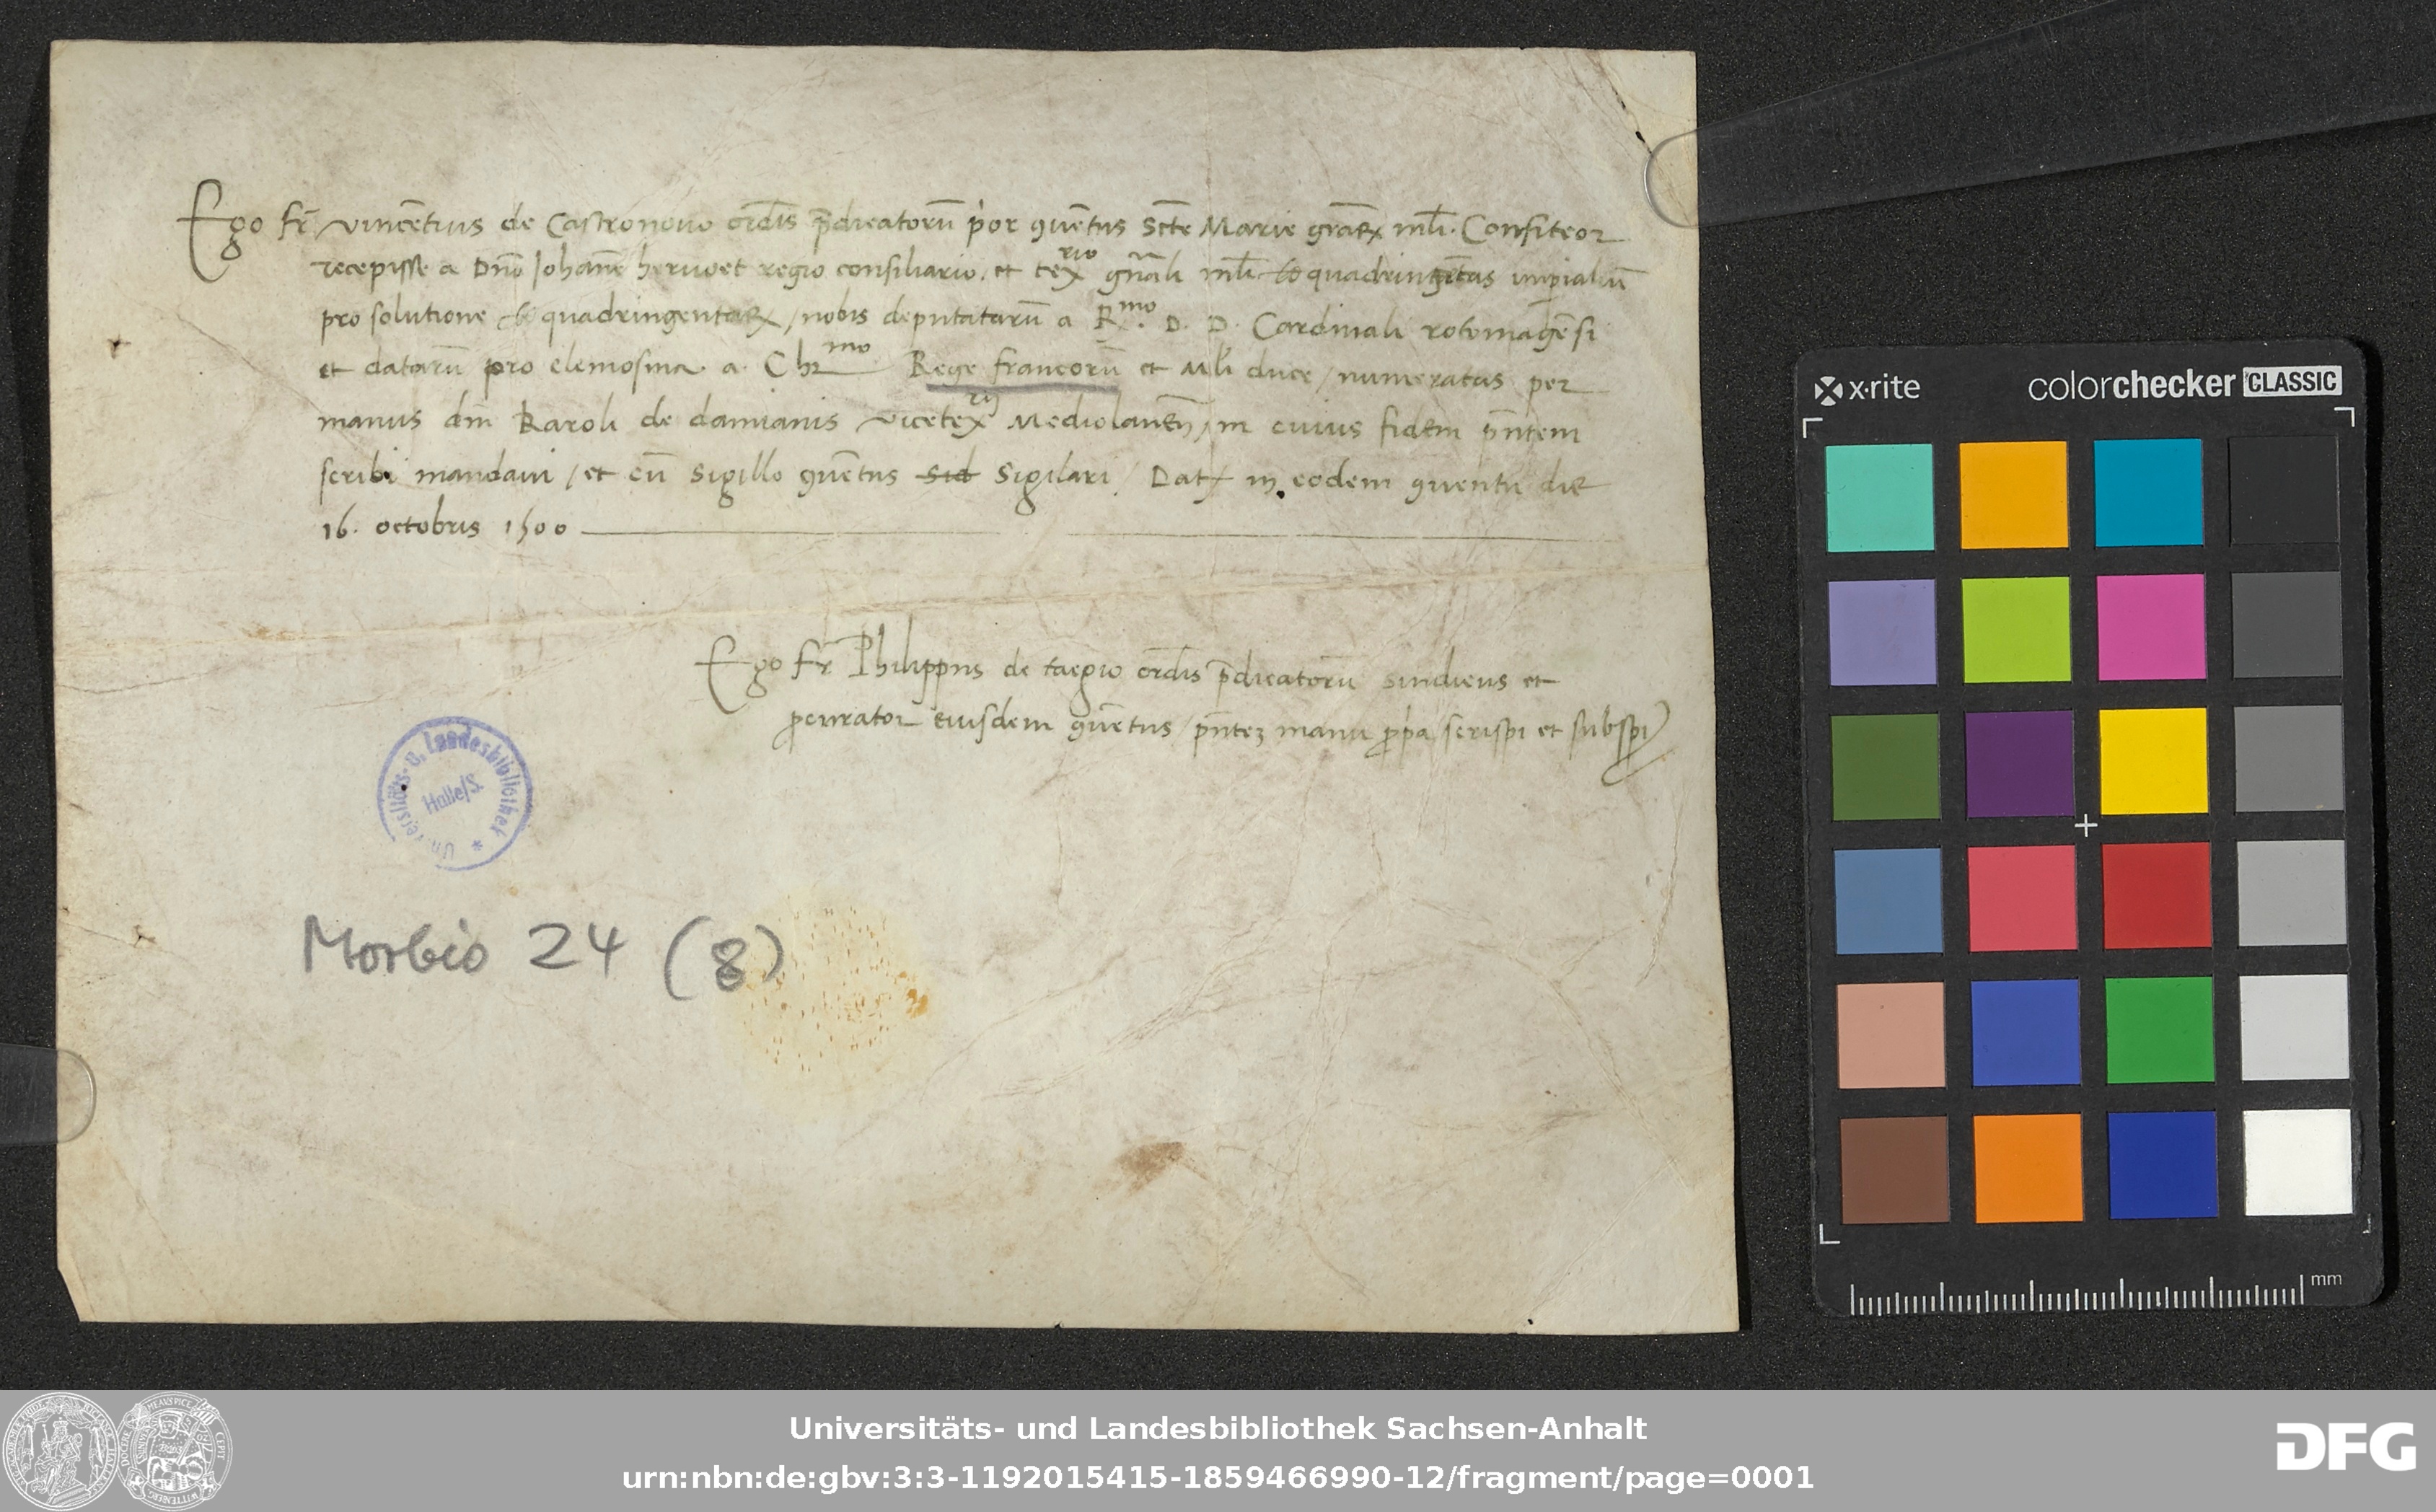 Ego fr̄ vincētius de Castronouo ordīs p̄dicatorū p̍or ꝯuētus Scte Marie gr̄aꝝ mlī. Confiteor
recepisse a Dn̄o Johanē heruoet regio consiliario. et texrio gn̄ali mlī quadringētas imꝑialiū
pro solutione quadringentaꝝ / nobis deputatarū a R.mo D. D. Cardinali rotomagēsi
et datarū pro elemosina a Chrmo Rege francorū et Mlī duce / numeratas per
manus dn̄i Karoli de damianis vicetexrij Mediolanēn / in cuius fidem pn̄tem
scribi mandaui / et cū sigillo ꝯuētus sid Sigilari / Dat in eodem ꝯuentu die
16. octobris 1500
Ego fr̄ Philippus de taegio ordīs p̄dicatorū sindicus et
ꝓcurator eiusdem ꝯuētus / pn̄teꝫ manu ꝓpa scripsi et subspi
Universitäts- u. Landesbibliothek *
Halle/S.
Morbio 24 (8)
x·rite
colorchecker CLASSIC
mm
Universitäts- und Landesbibliothek Sachsen-Anhalt
urn:nbn:de:gbv:3:3-1192015415-1859466990-12/fragment/page=0001
DFG